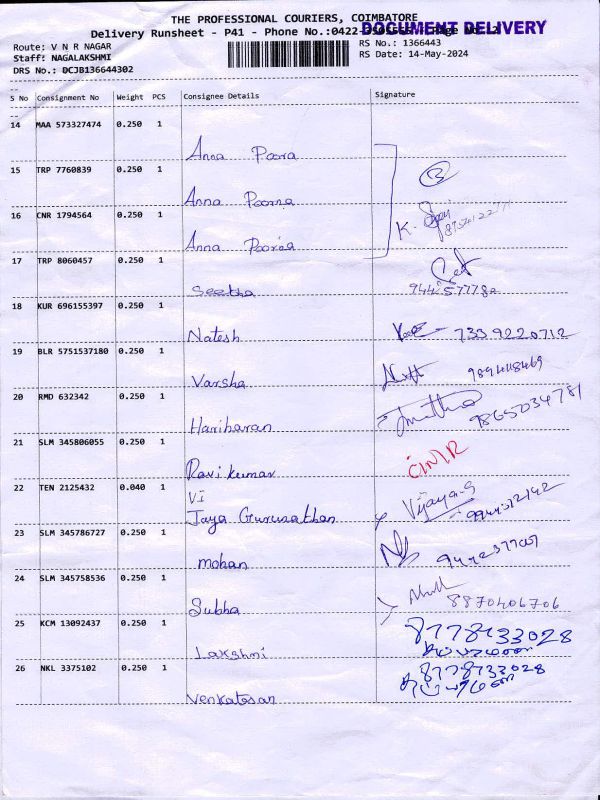 THE PROFESSIONAL COURIERS, COIMBATORE
DOCUMENT DELIVERY
Delivery Runsheet - P41 - Phone No.:0422-
Route: V N R NAGAR
RS No.: 1366443
Staff: NAGALAKSHMI
RS Date: 14-May-2024
DRS No.: DCJB136644302
S No Consignment No Weight PCS Consignee Details Signature
14 MAA 573327474 0.250 1
Anna Poora
15 TRP 7760839 0.250 1
Anna Poorna
16 CNR 1794564 0.250 1
K.
Anna Poorna
17 TRP 8060457 0.250 1
Seetha
18 KUR 696155397 0.250 1
Natesh 733 9220712
19 BLR 5751537180 0.250 1
Varsha
20 RMD 632342 0.250 1
Hariharan 9865034781
21 SLM 345806055 0.250 1
Ravi kumar
22 TEN 2125432 0.040 1
VI
Jaya Gurunathan Vijaya.G
23 SLM 345786727 0.250 1
mohan
24 SLM 345758536 0.250 1
Subha 8870406706
25 KCM 13092437 0.250 1
8778433028
Lakshmi
26 NKL 3375102 0.250 1
8778433028
Venkatesan